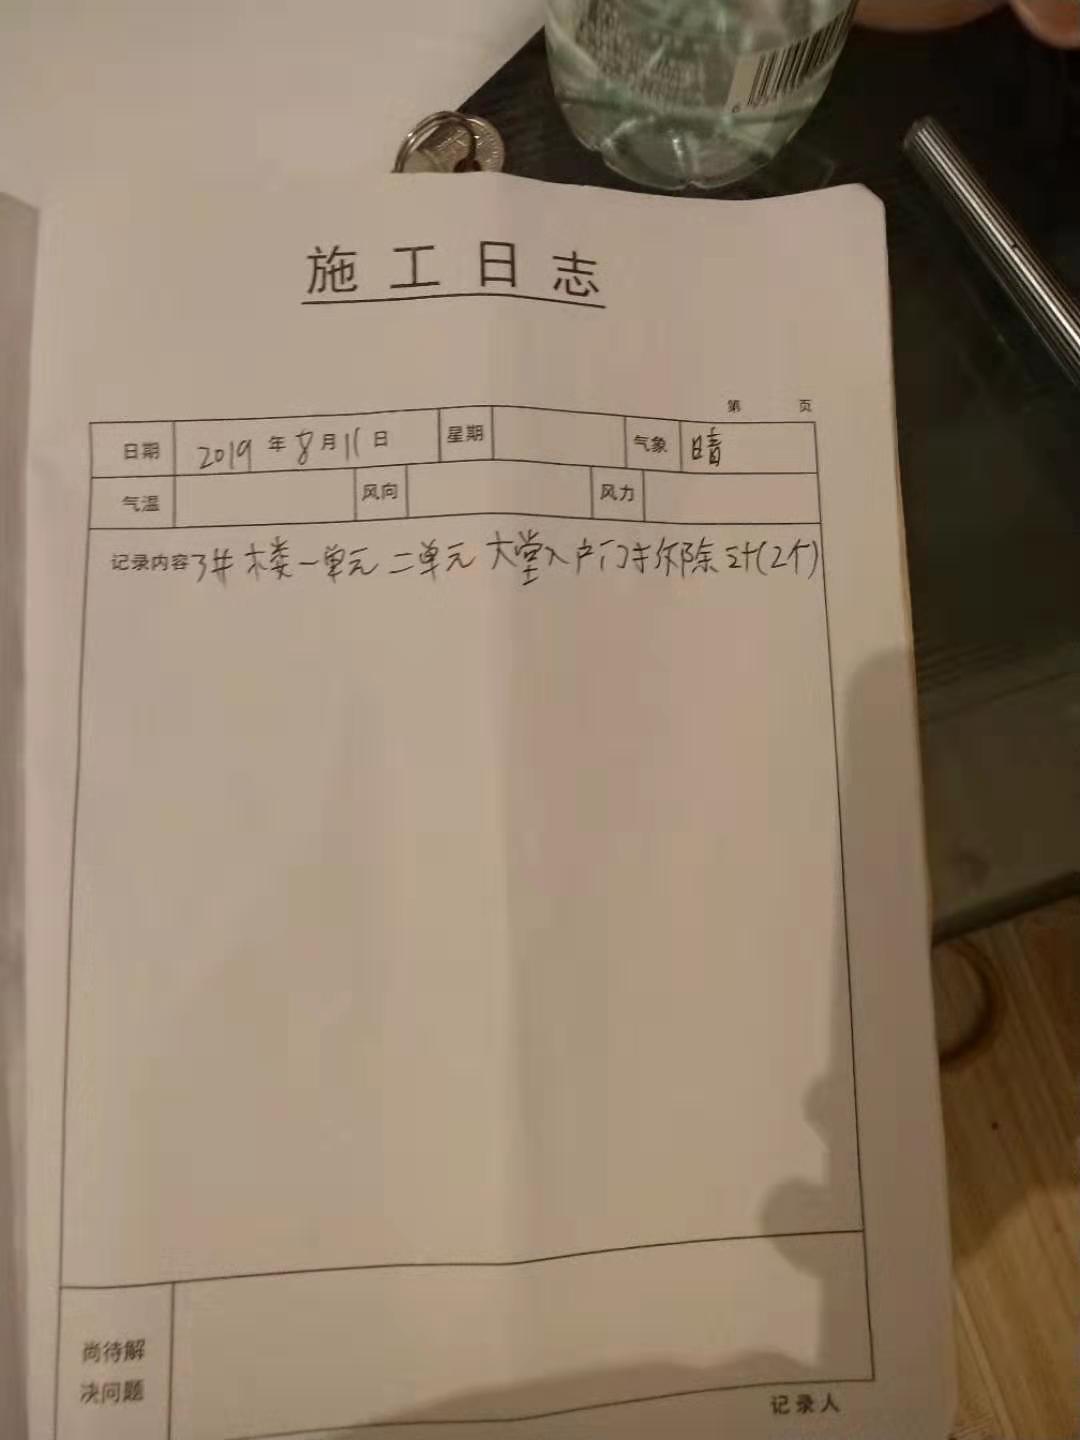 施工日志
第 页
日期 2019年8月11日 星期 气象 晴
气温 风向 风力
记录内容 3#楼一单元二单元大堂入户门拆除计(2个)
尚待解
决问题
记录人